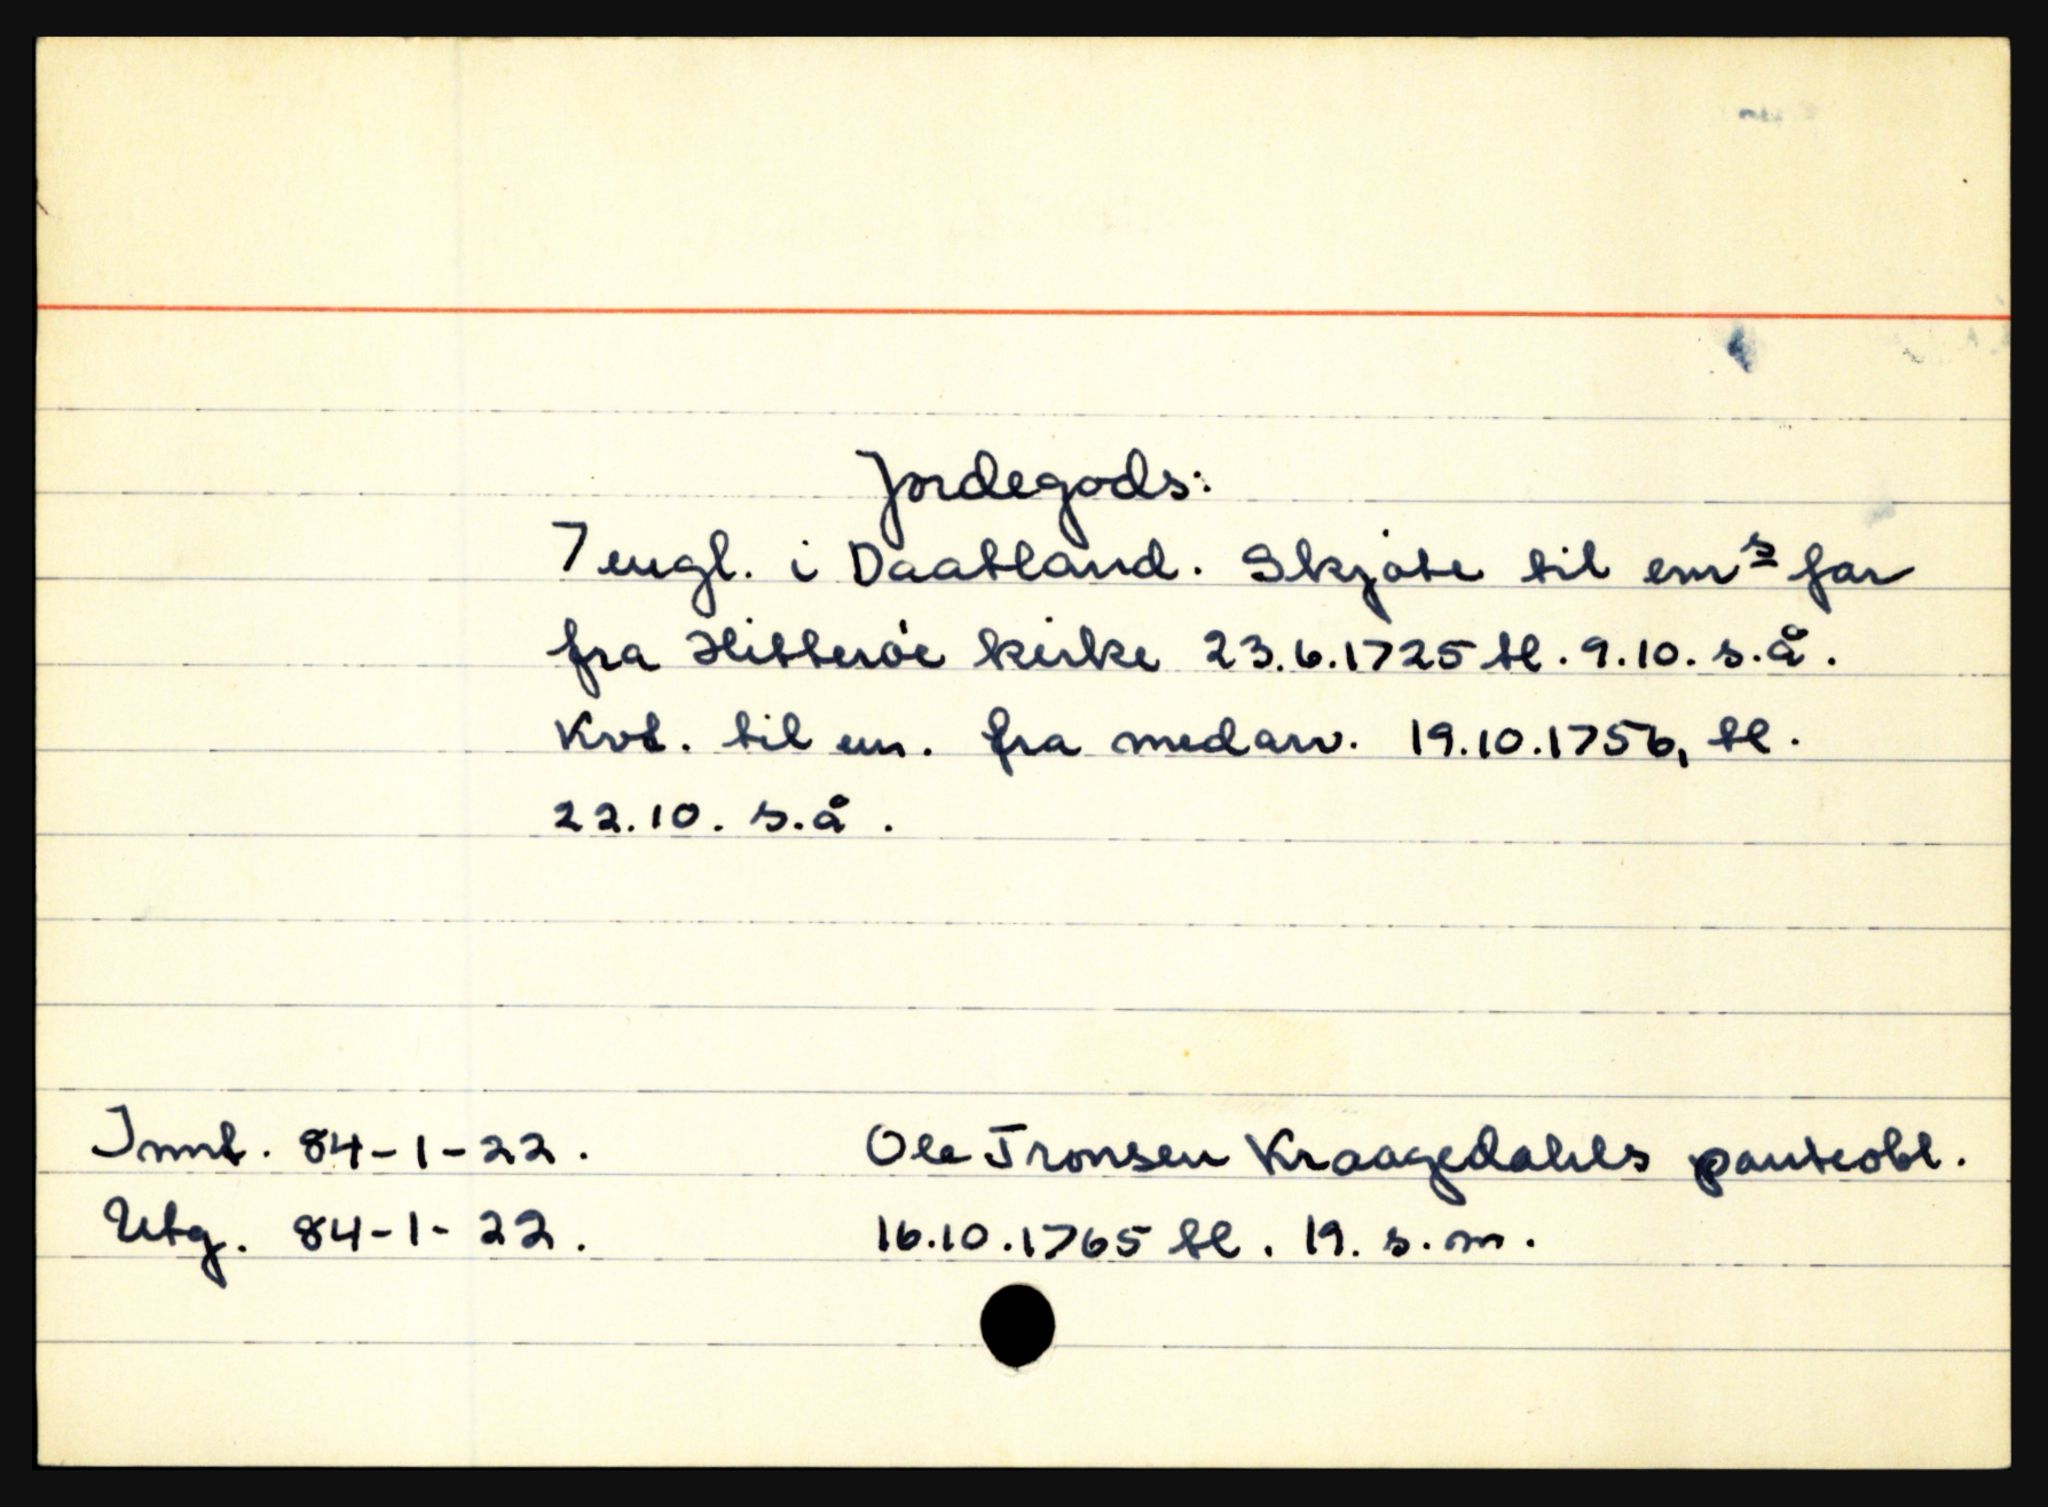 Jordegods:
7 engl. i Daatland. Skjøte til em<sup>s</sup> far
fra Hitterøe kirke 23.6.1725 tl. 9.10. s.å.
Kvt. til em. fra medarv. 19.10.1756, tl.
22.10. s.å.
Innt. 84-1-22. Ole Tronsen Kraagedahls panteobl.
Utg. 84-1-22. 16.10.1765 tl. 19. s.m.